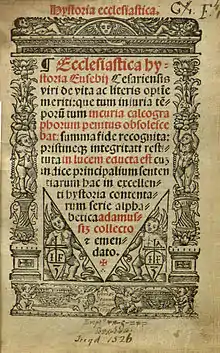 Hystoria ecclesiastica.
¶ Ecclesiastica hy-
storia Eusebij Cesariensis
viri de vita ac literis optīe
meriti: que tum iniuria tē-
porū tum incuria calcogra
phorum penitus obsolesce
bat: summa fide recognita:
pristineq; integritati resti-
tuta in lucem educta est cu
indice principalium senten
tiarum hac in excellen-
ti hystoria contenta-
rum serie alpha-
betica adamus-
sīz collecto
⁊ emen-
dato.
1526